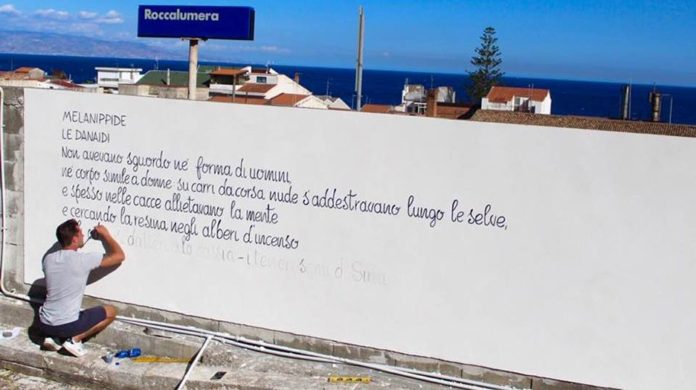 Roccalumera
MELANIPPIDE
LE DANAIDI
Non avevano sguardo nè forma di uomini,
nè corpo simile a donne: su carri da corsa nude s'addestravano lungo le selve,
e spesso nelle cacce allietavano la mente
e cercando la resina negli alberi d'incenso
cassia - i teneri semi di Siria